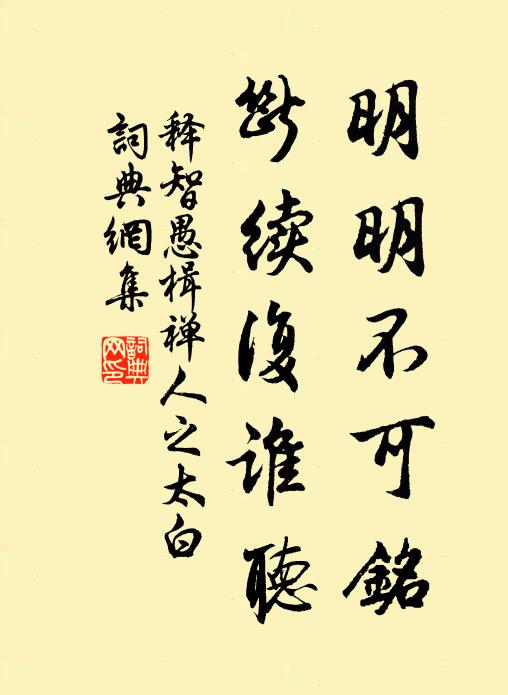 明明不可銘
斷续復誰聽
释智愚楫禅人之太白
詞典網集
詞典網印